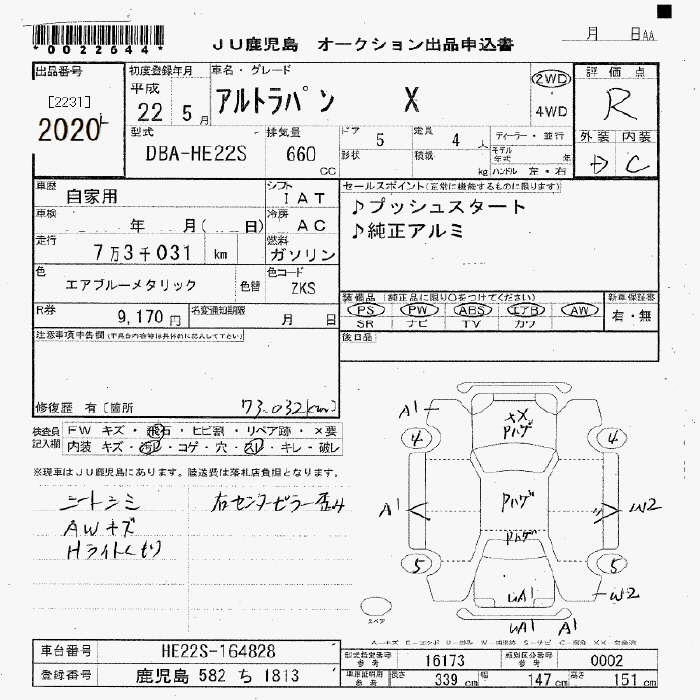 *0022644*
JU鹿児島 オークション出品申込書
月 日AA
出品番号
[2231]
2020
初度登録年月
平成
22 5月
車名・グレード
アルトラパン X
2WD
4WD
評価点
R
外装 内装
D C
型式
DBA-HE22S
排気量
660 CC
ドア 5
定員 4 人
形状
積載 kg
ディーラー・並行
モデル年式 年
ハンドル 左・右
車歴 自家用
シフト IAT
車検 年 月( 日)
冷房 AC
走行 7万3千031 km
燃料 ガソリン
色 エアブルーメタリック 色替
色コード ZKS
R券 9,170円
名変通知期限 月 日
セールスポイント(正常に機能するものに限ります)
♪プッシュスタート
♪純正アルミ
装備品(純正品に限り○をつけてください)
PS PW ABS エアB AW
SR ナビ TV カワ
新車保証書
有・無
後日品
注意事項申告欄
修復歴 有〔箇所 73.032(km)
検査員記入欄
FW キズ・飛石・ヒビ割・リペア跡・×要
内装 キズ・汚レ・コゲ・穴・スレ・キレ・破レ
※現車はJU鹿児島にあります。陸送費は落札店負担となります。
シートシミ
AWキズ
Hライトくもり
右センターピラー歪み
A1
4
XX
Pハゲ
4
A1
Pハゲ
W2
Pハゲ
5
5
UA1
W2
UA1 A1
スペア
車台番号 HE22S-164828
登録番号 鹿児島 582 ち 1813
型式指定番号 参考 16173
類別区分番号 参考 0002
車庫証明用 参考 長さ 339 cm 幅 147 cm 高さ 151 cm